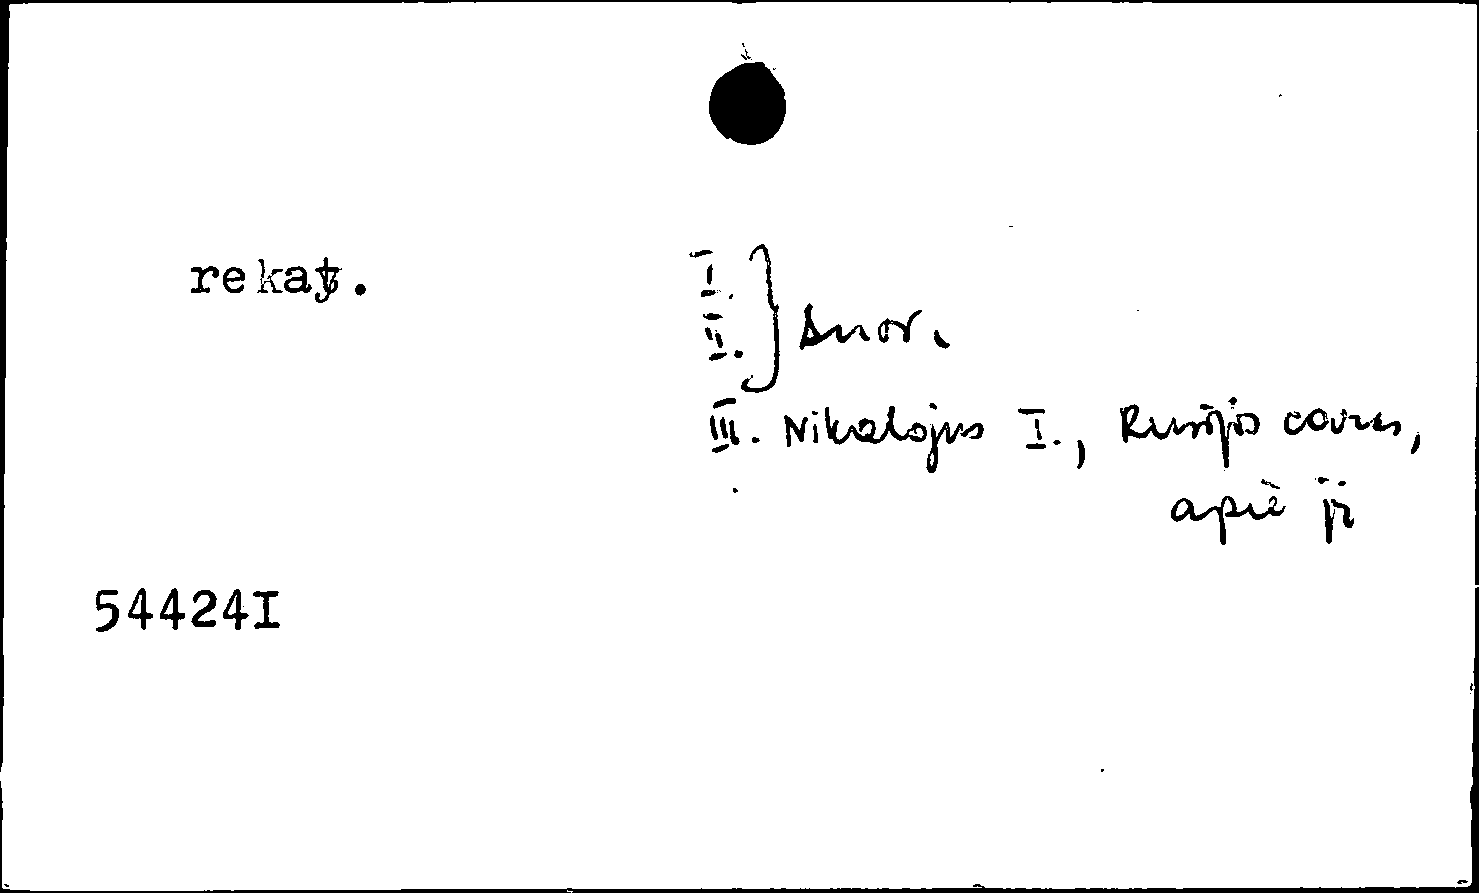 rekat.
I.
II. } Suor.
III. Nikalojus I., Rusijos caras,
apie jį
54424I